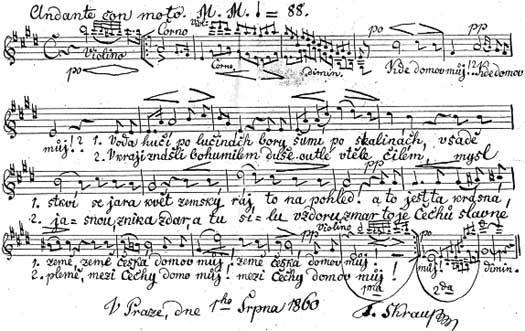 Andante con moto. M. M. ♩= 88.
Corno Viol:
Violino po po pp
Corno dimin. Kde domov můj!? Kde domov
můj!? 1. Voda hučí po lučinách bory šumí po skalinách, v sadě
2. V kraji znáš-li bohumilém duše outlé v těle čilém, mysl
1. stkví se jara květ zemský ráj to na pohled! a to jest ta krásná,
2. ja=snou, znik a zdar, a tu sí=lu vzdoru zmar to je Čechů slavné
pp Violino pp
1. země, země česká domov můj! země česká domov můj! můj! dimin.
2. plémě, mezi Čechy domov můj! mezi Čechy domov můj!
1ma 2da
V Praze, dne 1ho Srpna 1860 Škraup